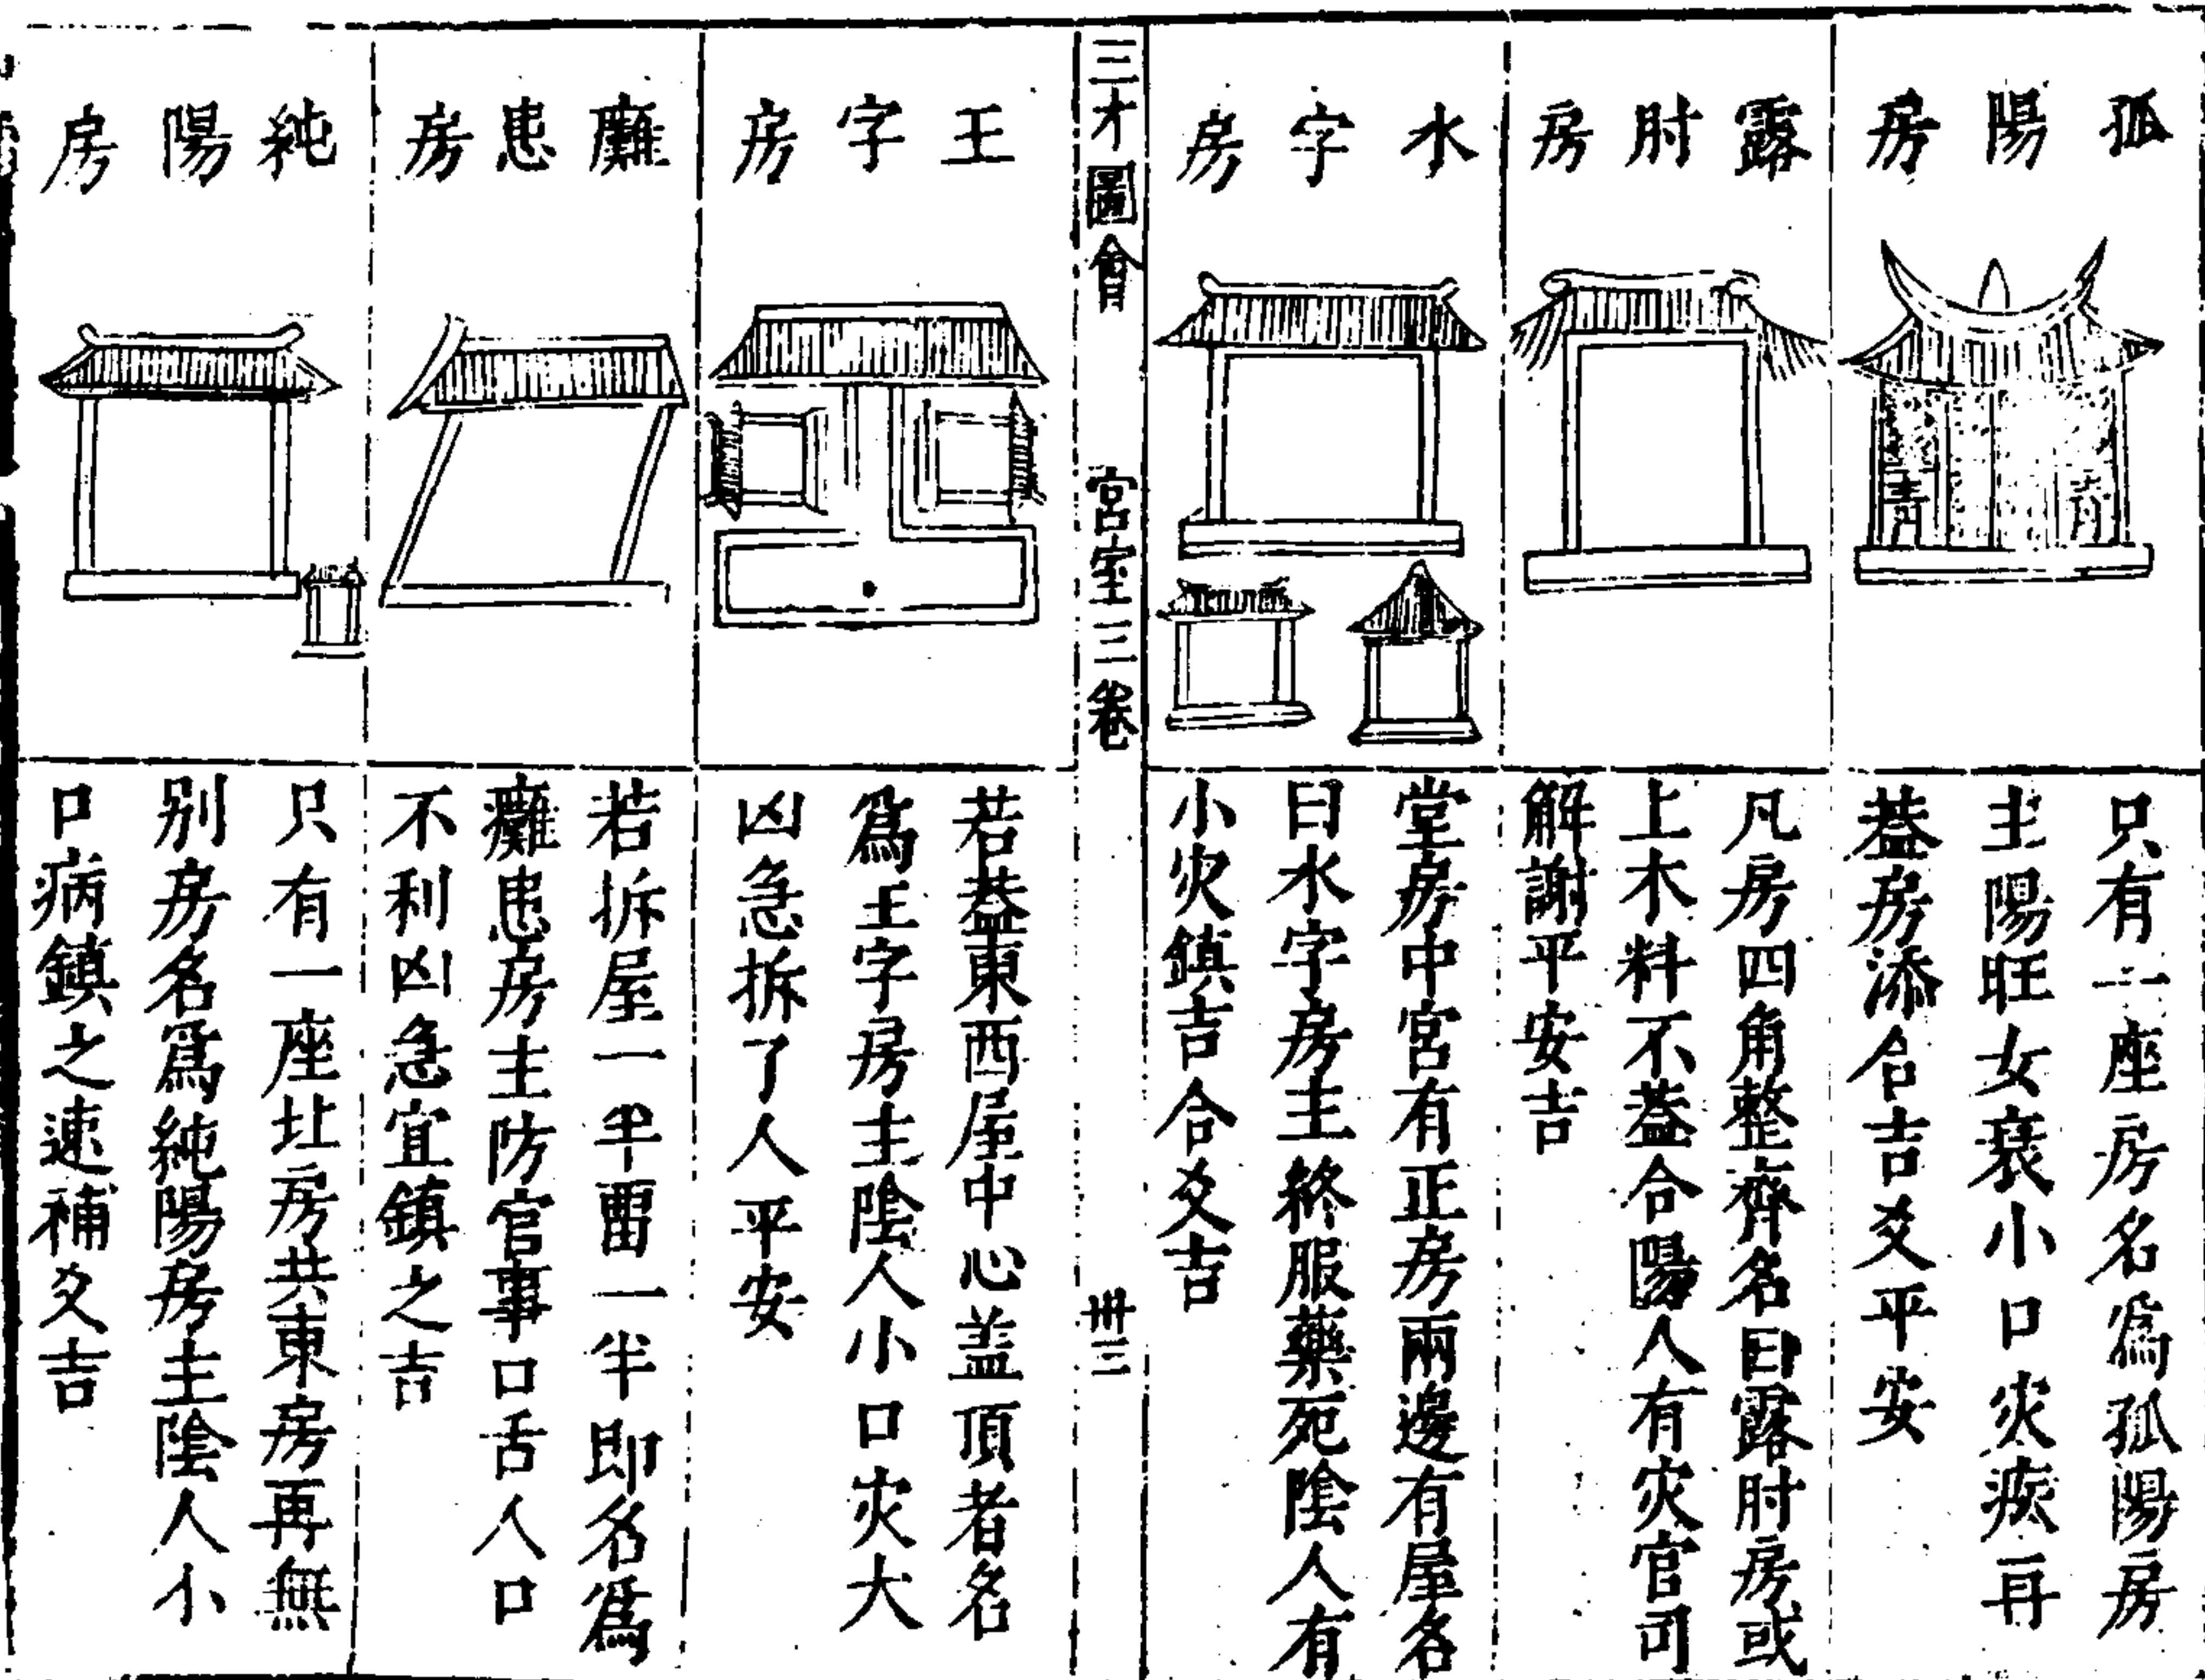 孤陽房
只有一座房名爲孤陽房
主陽旺女衰小口灾疾再
葢房添合吉爻平安
露肘房
凡房四角整齊名曰露肘房或
上木料不葢合陽人有灾官司
解謝平安吉
水字房
堂房中宮有正房兩邊有屋名
曰水字房主終服藥死陰人有
小灾鎮吉合爻吉
三才圖會 宮室三卷 卅三
王字房
若葢東西屋中心盖頂者名
爲王字房主陰人小口灾大
凶急拆了人平安
癱患房
若拆屋一半畱一半即名爲
癱患房主防官事口舌人口
不利凶急宜鎮之吉
純陽房
只有一座北房共東房再無
别房名爲純陽房主陰人小
口病鎮之速補爻吉